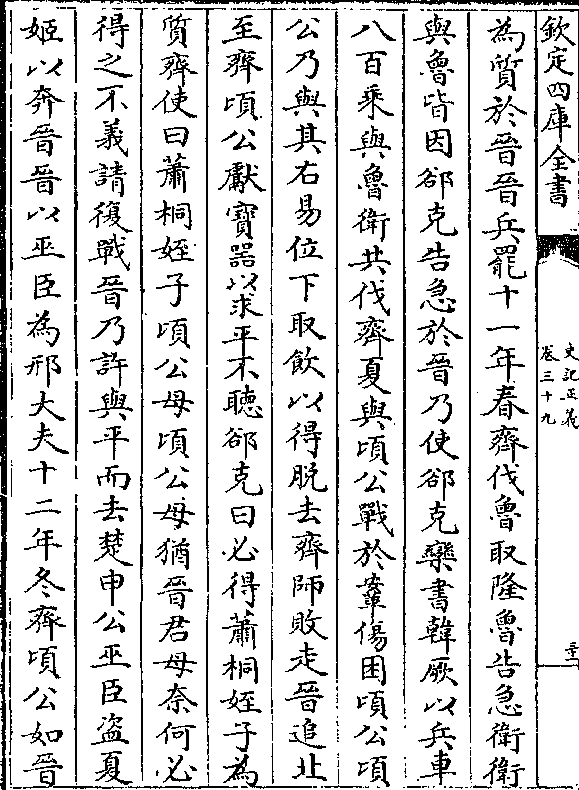 欽定四庫全書
史記正義
卷三十九
為質於晉晉兵罷十一年春齊伐魯取隆魯告急衛衛
與魯皆因郤克告急於晉乃使郤克欒書韓厥以兵車
八百乘與魯衛共伐齊夏與頃公戰於鞌傷困頃公頃
公乃與其右易位下取飲以得脫去齊師敗走晉追北
至齊頃公獻寶器以求平不聽郤克曰必得蕭桐姪子為
質齊使曰蕭桐姪子頃公母頃公母猶晉君母奈何必
得之不義請復戰晉乃許與平而去楚申公巫臣盜夏
姬以奔晉晉以巫臣為邢大夫十二年冬齊頃公如晉